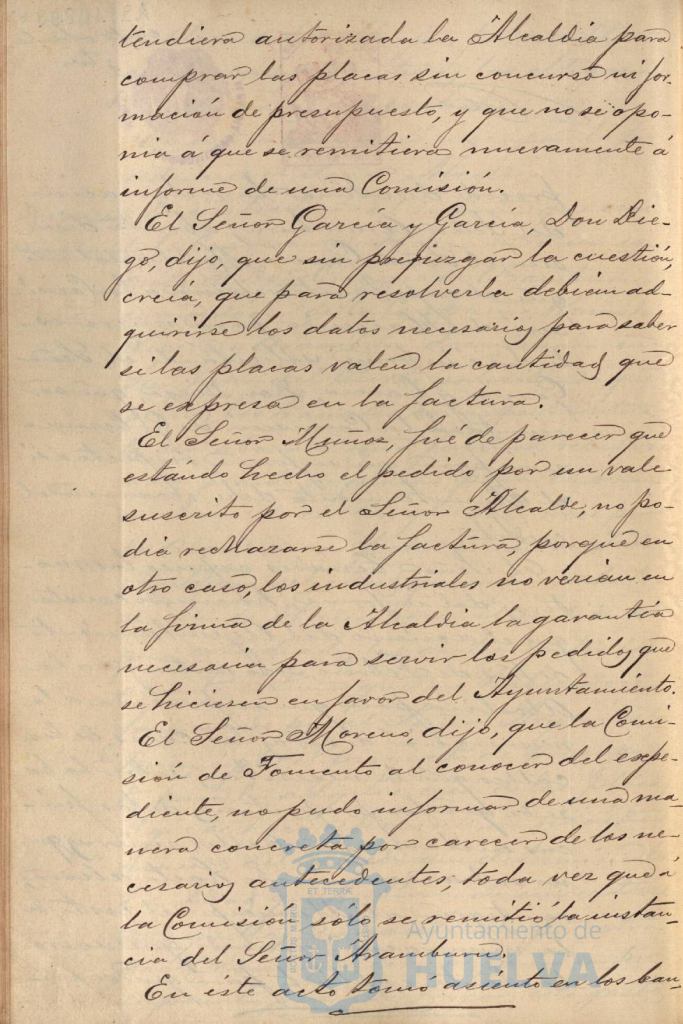 tendiera autorizada la Alcaldia para
comprar las placas sin concurso ni for-
mación de presupuesto, y que no se opo-
nia á que se remitiera nuevamente á
informe de una Comisión.
El Señor García y García, Don Die-
go, dijo, que sin prejuzgar la cuestión,
creia, que para resolverla debian ad-
quirirse los datos necesarios para saber
si las placas valen la cantidad que
se expresa en la factura.
El Señor Muñoz, fué de parecer que
estándo hecho el pedido por un vale
suscrito por el Señor Alcalde, no po-
dia rechazarse la factura, porque en
otro caso, los industriales no verian en
la firma de la Alcaldia la garantia
necesaria para servir los pedidos que
se hiciesen en favor del Ayuntamiento.
El Señor Moreno, dijo, que la Comi-
sión de Fomento al conocer del expe-
diente, no pudo informar de una ma-
nera concreta por carecer de los ne-
cesarios antecedentes, toda vez que á
la Comisión sólo se remitió la instan-
cia del Señor Aramburu.
En éste acto tomó asiento en los ban-
ET TERRÆ
Ayuntamiento de
HUELVA